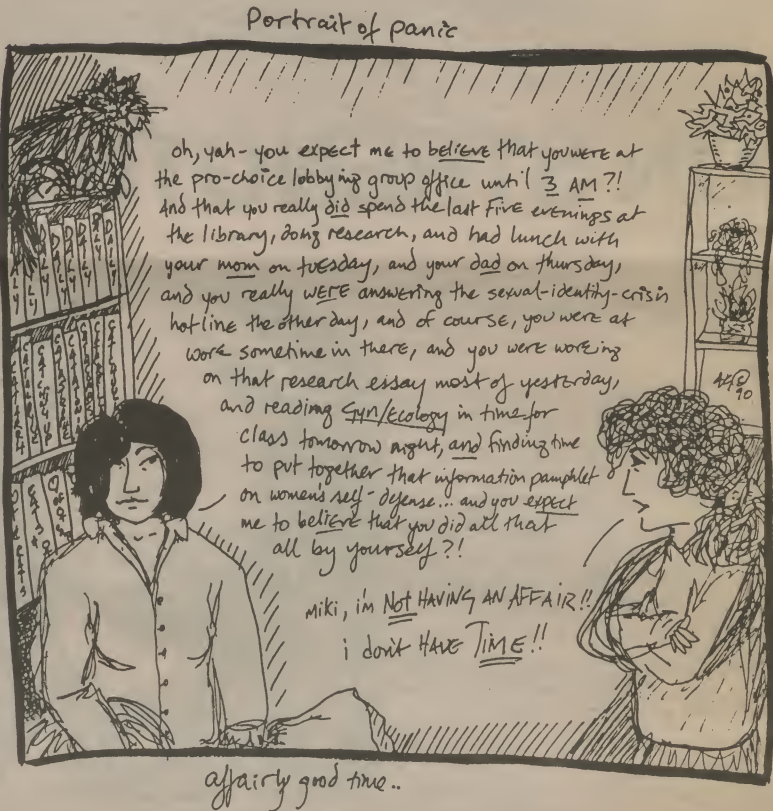 Portrait of panic
oh, yah - you expect me to believe that you were at
the pro-choice lobbying group office until 3 AM?!
And that you really did spend the last FIVE evenings at
the library, doing research, and had lunch with
your mom on tuesday, and your dad on thursday,
and you really WERE answering the sexual-identity-crisis
hotline the other day, and of course, you were at
work sometime in there, and you were working
on that research essay most of yesterday,
and reading Gyn/Ecology in time for
class tomorrow night, and finding time
to put together that information pamphlet
on women's self-defense... and you expect
me to believe that you did all that
all by yourself?!
Miki, i'm NOT HAVING AN AFFAIR!!
i don't HAVE TIME!!
DAILY
DAILY
DAILY
DAILY
90
affairly good time..